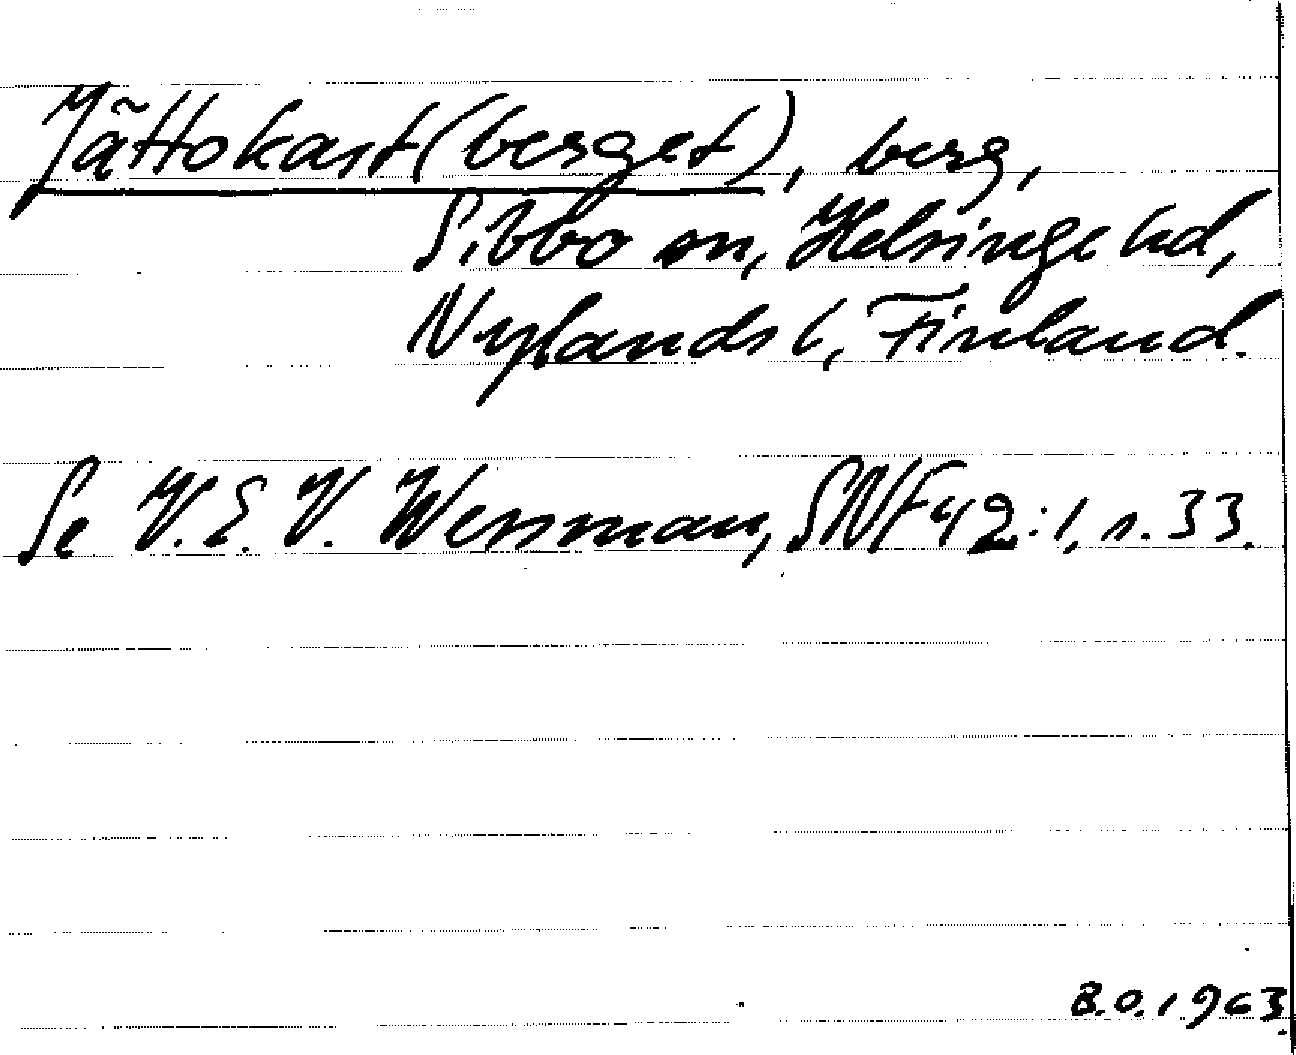 Jättokast(berget), berg,
Sibbo sn, Helsinge hd,
Nylands l, Finland.
Se V.E.V. Wessman, SNF 42:1, s. 33.
B.O. 1963.